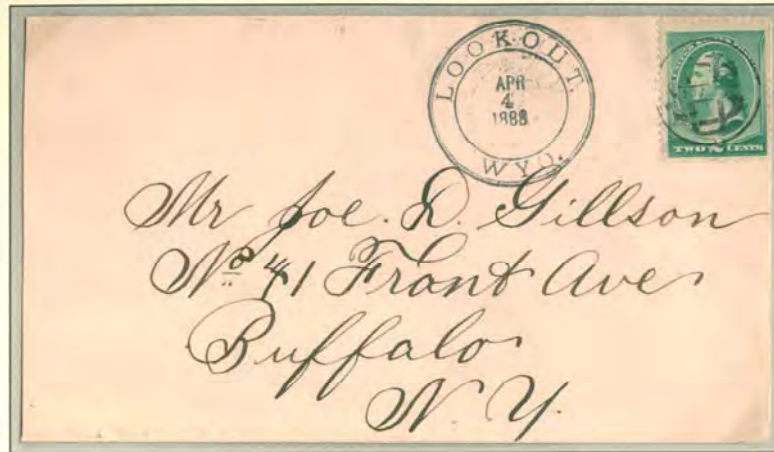 LOOKOUT.
APR
4
1888
WYO.
TWO CENTS
Mr Joe. D. Gillson
No 41 Front Ave
Buffalo
N. Y.